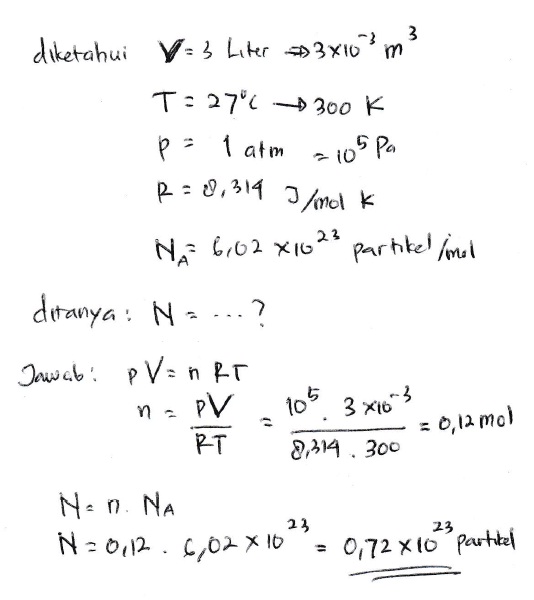 diketahui V = 3 Liter ⇒ 3×10⁻³ m³
T = 27°C → 300 K
P = 1 atm = 10⁵ Pa
R = 8,314 J/mol K
N_A = 6,02 ×10²³ partikel/mol
ditanya : N = ... ?
Jawab : pV = n RT
n = PV/RT = 10⁵ . 3×10⁻³ / 8,314 . 300 = 0,12 mol
N = n. N_A
N = 0,12 . 6,02 × 10²³ = 0,72 ×10²³ partikel